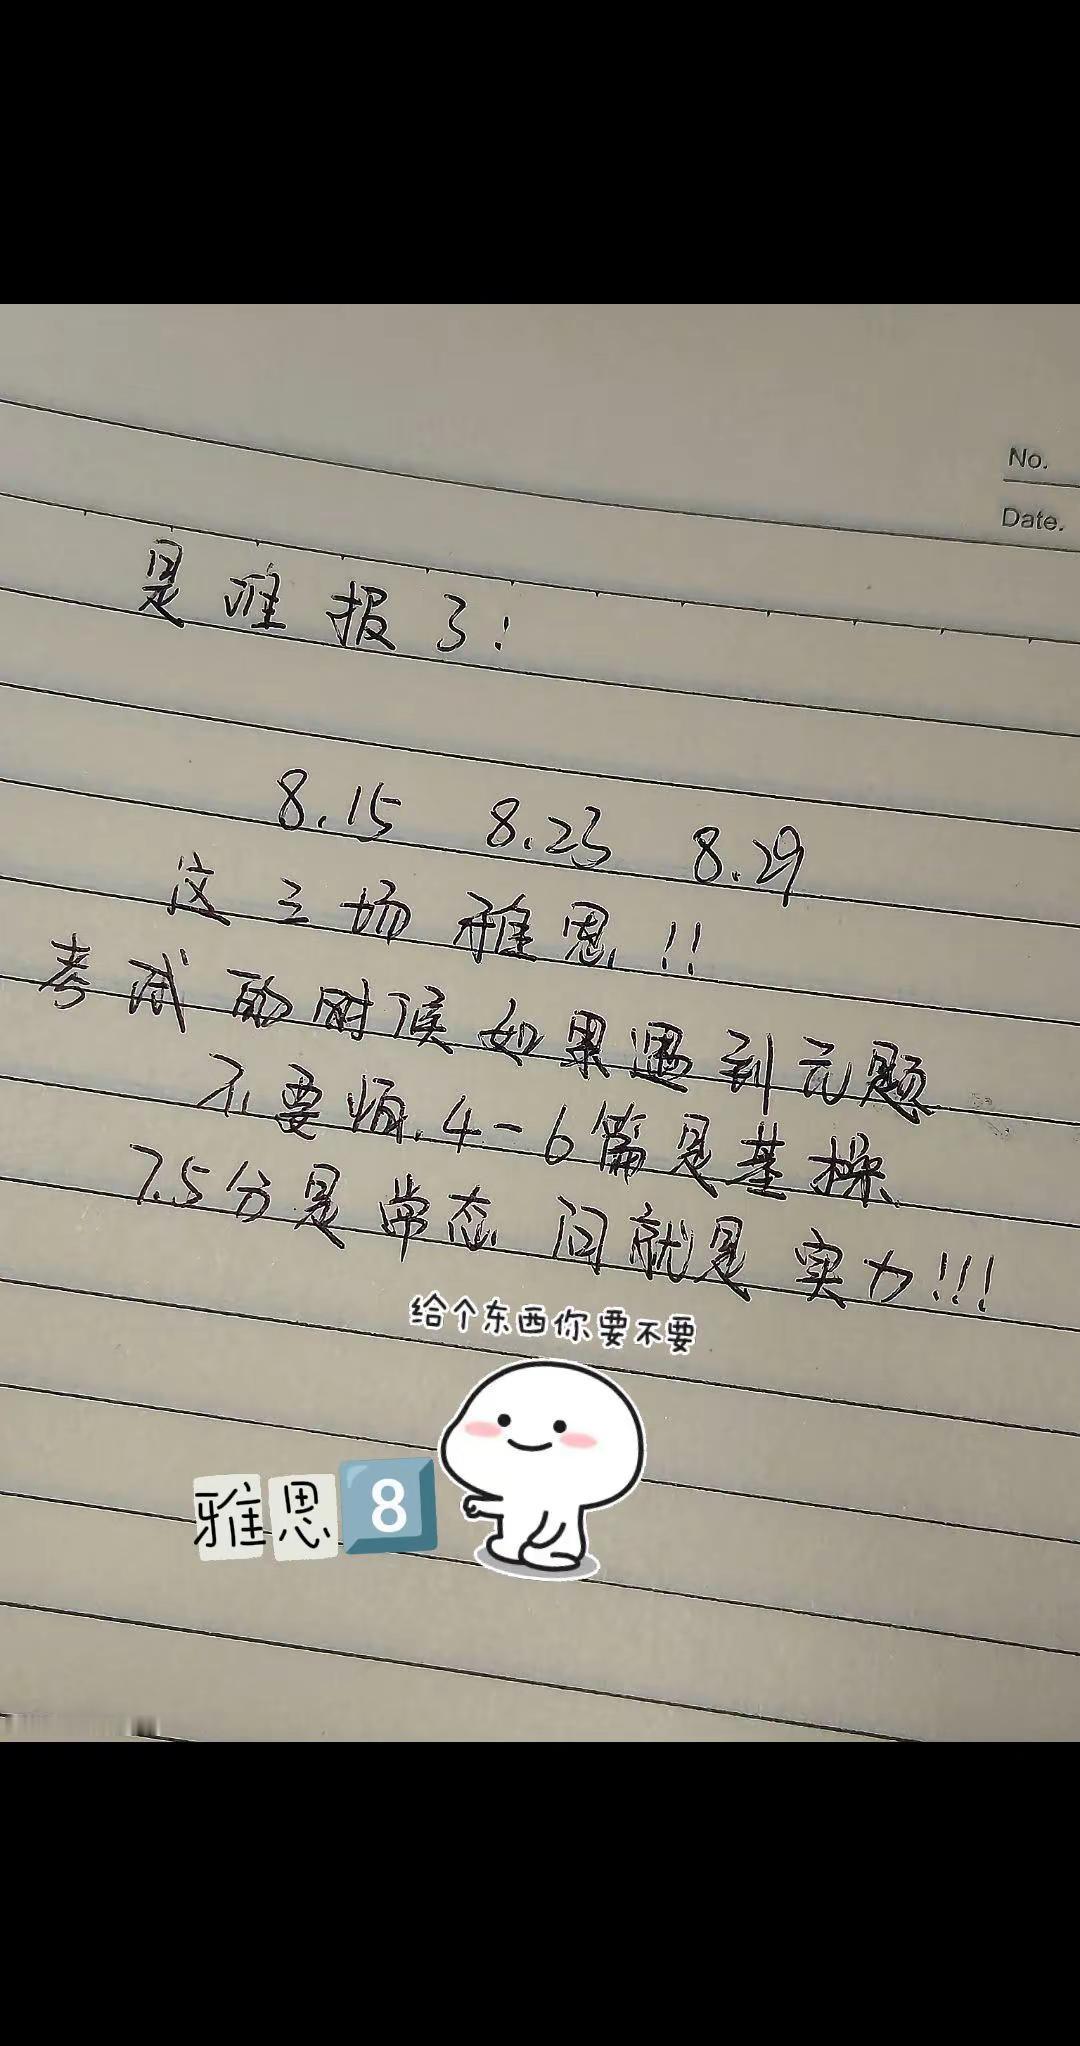 No.
Date.
是谁报了:
8.15 8.23 8.29
这三场雅思!!
考试的时候如果遇到元题
不要慌.4-6篇是基操
7.5分是常态 问就是实力!!!
给个东西你要不要
雅思8